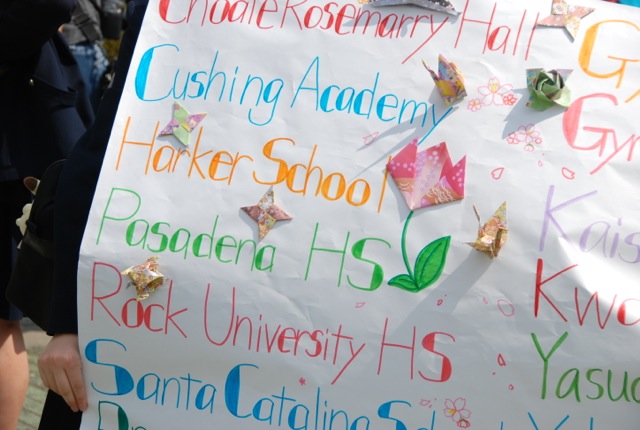 Choate Rosemarry Hall
Cushing Academy
Harker School
Pasadena HS
Rock University HS
Santa Catalina